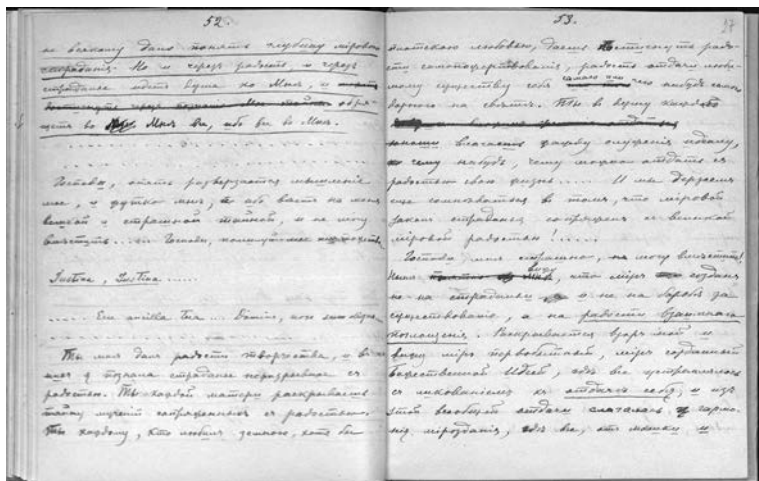 52.
не всякому дано понять глубину мірового
страданія. Но и черезъ радость и черезъ
страданіе идетъ душа ко Мнѣ, и
обря-
щетъ во Мнѣ все, ибо все во Мнѣ.
Господи, опять разверзается мышленіе
мое, и жутко мнѣ, ибо вѣетъ на меня
великой и страшной тайной, и не могу
вмѣстить..... Господи, помилуй мое
Justina, Justina ......
..... Ecce ancilla Tua ... Domine,
Ты мнѣ далъ радость творчества, и въ
я познала страданіе неразрывное съ
радостью. Ты каждой матери раскрываешь
тайну мученій сопряженныхъ съ радостью.
Ты каждому, кто любитъ земною, хотя бы
53.
любовью, даешь постигнуть радо-
сть самопожертвованія, радость отдачи люби-
мому существу себя самого или чего нибудь самого
дорогого на свѣтѣ. Ты въ душу каждаго
юноши влагаешь жажду служенія подвигу,
чему нибудь, чему можно отдать съ
радостью свою жизнь..... И мы дерзаемъ
еще сомнѣваться въ томъ, что міровой
законъ страданія сопряженъ съ великой
міровой радостью!.....
Господи, мнѣ страшно, не могу вмѣстить!
вижу, что міръ созданъ
не на страданіи и не на борьбѣ за
существованіе, а на радости взаимнаго
поглощенія. Раскрывается взоръ мой и
вижу міръ первобытный, міръ созданный
Божественной Идеей, гдѣ все устремлялось
съ ликованіемъ къ отдачѣ себя, и изъ
этой всеобщей отдачи слагалась гармо-
нія мірозданія, гдѣ все, отъ мошки и